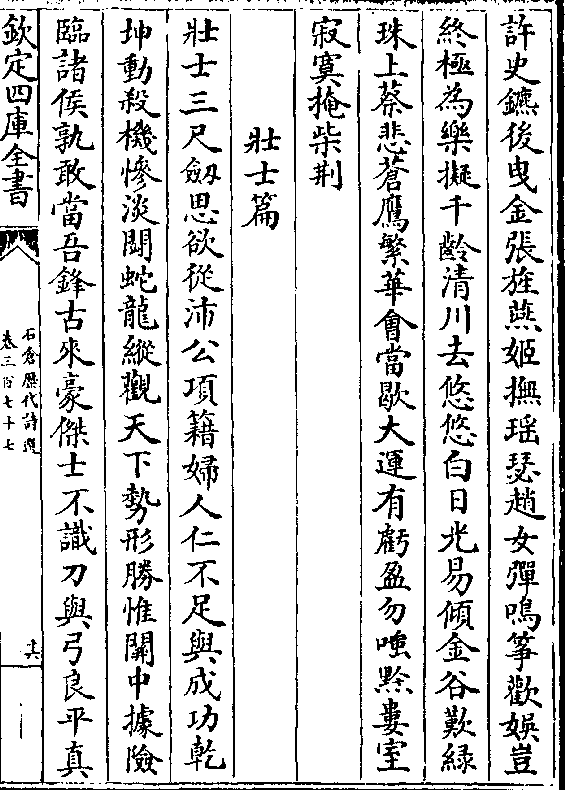 許史鑣後曳金張旌燕姬撫瑶瑟趙女彈鳴筝歡娛豈
終極為樂擬千齡清川去悠悠白日光易傾金谷歎緑
珠上蔡悲蒼鷹繁華會當歇大運有虧盈勿嗤黔婁室
寂寞掩柴荆
壯士篇
壯士三尺劔思欲從沛公項籍婦人仁不足與成功乾
坤動殺機慘淡鬬蛇龍縱觀天下勢形勝惟關中據險
臨諸侯孰敢當吾鋒古來豪傑士不識刀與弓良平真
欽定四庫全書
石倉歷代詩選
卷三百七十七
十六